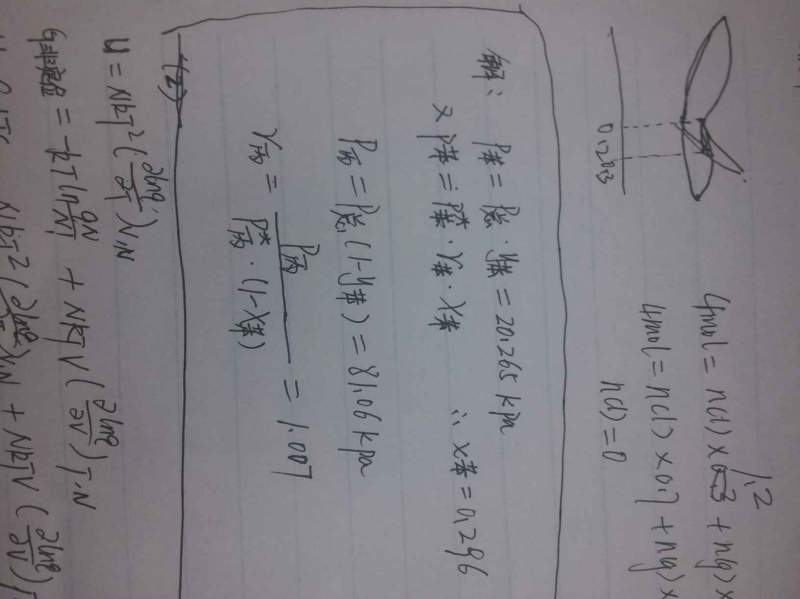 1.2
4mol = n(l) × 0.3 + n(g) ×
4mol = n(l) × 0.7 + n(g) ×
n(l) = 0
0.2 0.3
解: P苯 = P总 · y苯 = 20.265 kpa
又 P苯 = P*苯 · γ苯 · x苯 ∴ x苯 = 0.296
P丙 = P总 (1-y苯) = 81.06 kpa
γ丙 = P丙 / P*丙 · (1-x苯) = 1.007
(2)
U = NkT² (∂lnq/∂T)V,N
= -kTln q^N/N! + NkTV (∂lnq/∂V)T,N
NkT² (∂lnq/∂T)V,N + NkTV (∂lnq/∂V)T,